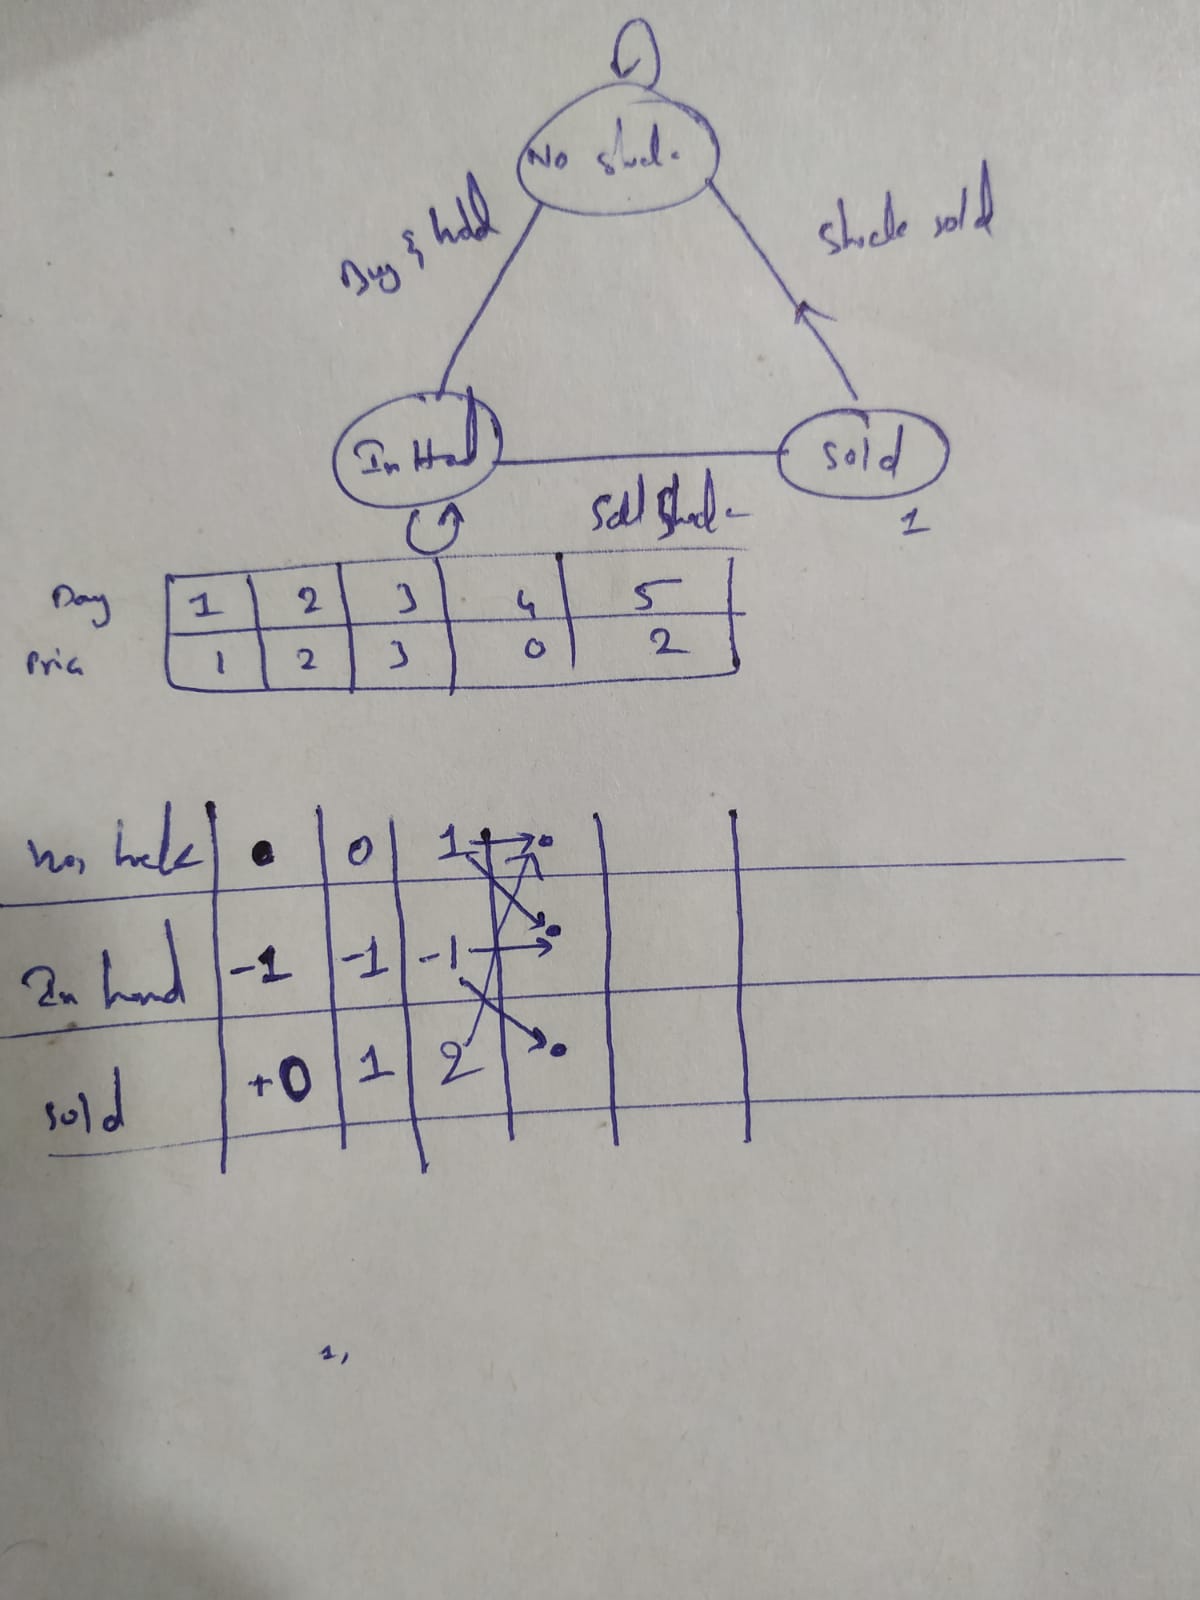 No stock
Buy & hold
Stock sold
In Hand
Sold
Sell Stock
1
Day 1 2 3 4 5
Price 1 2 3 0 2
0 1
In hand -1 -1 -1
Sold +0 1 2
1,